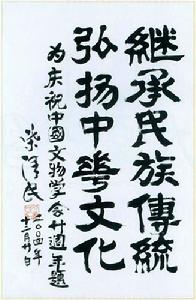 継承民族傳統
弘扬中華文化
为庆祝中國文物学会廿週年题
二〇〇四年
十二月廿日